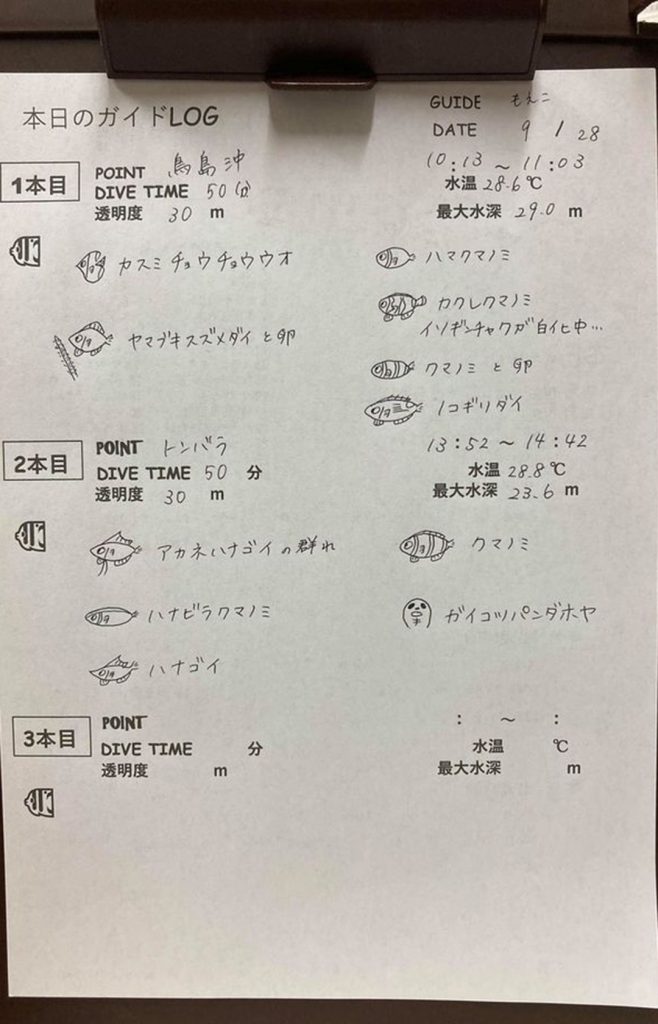 本日のガイドLOG
GUIDE もえこ
DATE 9 / 28
1本目
POINT 鳥島沖
10:13 ~ 11:03
DIVE TIME 50 分
水温 28.6 ℃
透明度 30 m
最大水深 29.0 m
カスミチョウチョウウオ
ハマクマノミ
カクレクマノミ
イソギンチャクが白化中…
ヤマブキスズメダイと卵
クマノミと卵
ノコギリダイ
2本目
POINT トンバラ
13:52 ~ 14:42
DIVE TIME 50 分
水温 28.8 ℃
透明度 30 m
最大水深 23.6 m
アカネハナゴイの群れ
クマノミ
ハナビラクマノミ
ガイコツパンダホヤ
ハナゴイ
3本目
POINT
: ~ :
DIVE TIME 分
水温 ℃
透明度 m
最大水深 m